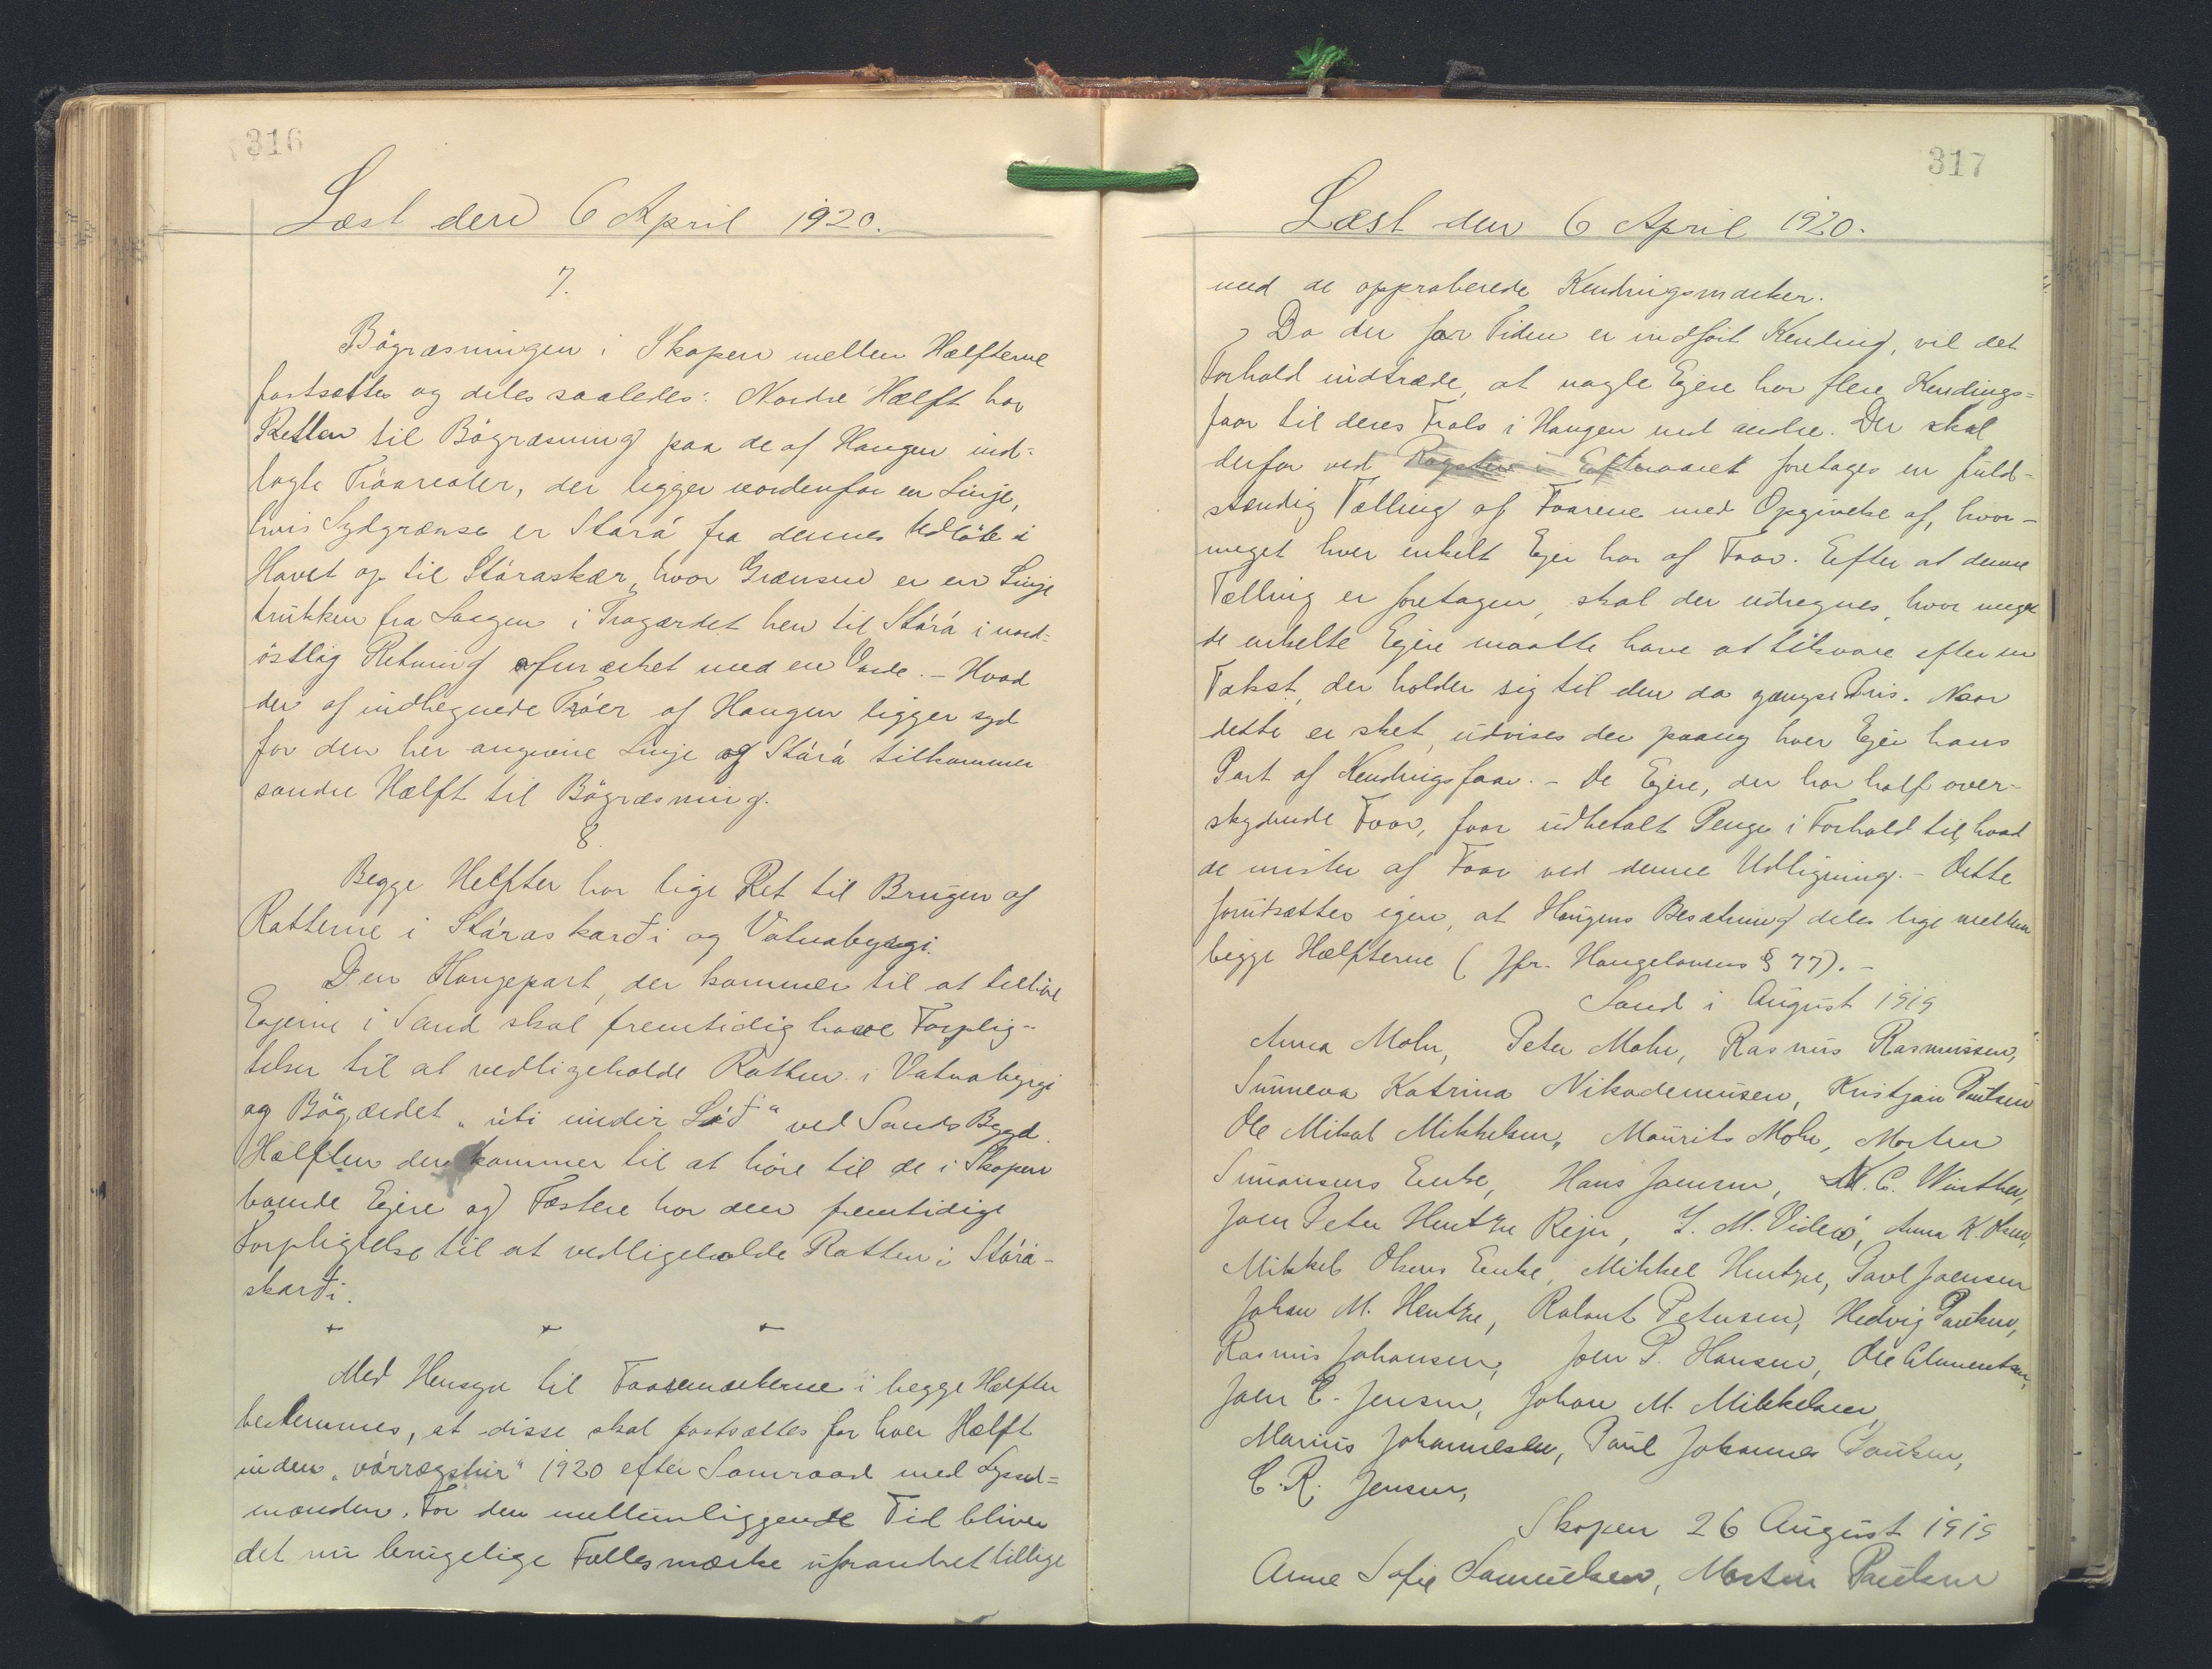 316
Læst den 6 April 1920.
7.
Bögræsningen i Skopen mellem Hælfterne
fortsættes og deles saaledes: Nordre Hælft har
Retten til Bögræsning paa de af Haugen ind-
lagte Tröarealer, der ligger nordenfor en Linje,
hvis Sydgrænse er Stórá fra dennes Udløb i
Havet op til Stóraskar, hvor Grænsen er en Linje
trukken fra Laagen i Trøgærdet hen til Stórá i nord-
östlig Retning afmærket med en Varde. - Hvad
der af indhegnede Tröer af Haugen ligger syd
for den her angivne Linje og Stórá tilkommer
søndre Hælft til Bögræsning.
8.
Begge Helfter har lige Ret til Brugen af
Rætterne i Stóraskarði og Vatnabyrgi.
Den Haugepart, der kommer til at tilhøre
Ejerne i Sand skal fremtidig have Forplig-
telser til at vedligeholde Rætten i Vatnabyrgi
og Bögærdet "úti undir Lað" ved Sands Bygd.
Hælften der kommer til at höre til de i Skopen
boende Ejere og Fæstere har den fremtidige
Forpligtelse til at vedligeholde Rætten i Stórá-
skarði.
+ + +
Med Hensyn til Faaremærkerne i begge Hælfter
bestemmes, at disse skal fastsættes for hver Hælft
inden "várrøgstur" 1920 efter Samraad med Syssel-
manden. For den mellemliggende Tid bliver
det nu brugelige Fællesmærke uforandret tillige
317
Læst den 6 April 1920.
med de approberede Kendingsmærker.
Da der for Tiden er indført Kending, vil det
Forhold indtræde, at nogle Ejere har flere Kendings-
faar til deres Trals i Haugen end andre. Der skal
derfor ved Røgsten i Efteraaret foretages en fuld-
stændig Tælling af Faarene med Opgivelse af, hvor-
meget hver enkelt Ejer har af Faar. Efter at denne
Tælling er foretagen, skal der udregnes, hvor meget
de enkelte Ejere maatte have at tilsvare efter en
Takst, der holder sig til den da gængse Pris. Naar
dette er sket, udvises der paany hver Ejer hans
Part af Kendingsfaar. - De Ejere, der har haft over-
skydende Faar, faar udbetalt Penge i Forhold til, hvad
de mister af Faar ved denne Udligning. - Dette
forudsætter igen, at Haugens Besætning deles lige mellem
begge Hælfterne (Jfr. Haugelovens § 77). -
Sand i August 1919
Anna Mohr, Peter Mohr, Rasmus Rasmussen,
Sunneva Katrina Nikodemusen, Kristjan Poulsen
Ole Mikal Mikkelsen, Maurits Mohr, Morten
Simonsens Enke, Hans Joensen, N. C. Winther,
Joen Peter Hentze Rejn, J. M. Viderö, Anna K. Olsen,
Mikkel Olsens Enke, Mikkel Hentze, Poul Joensen
Johan M. Hentze, Rolant Petersen, Hedvig Poulsen,
Rasmus Johansen, Joen P. Hansen, Ole Clementsen,
Joen C. Jensen, Johan M. Mikkelsen,
Marius Johannesen, Poul Johannes Poulsen,
C. R. Jensen,
Skopen 26 August 1919
Anne Sofie Samuelsen, Morten Poulsen